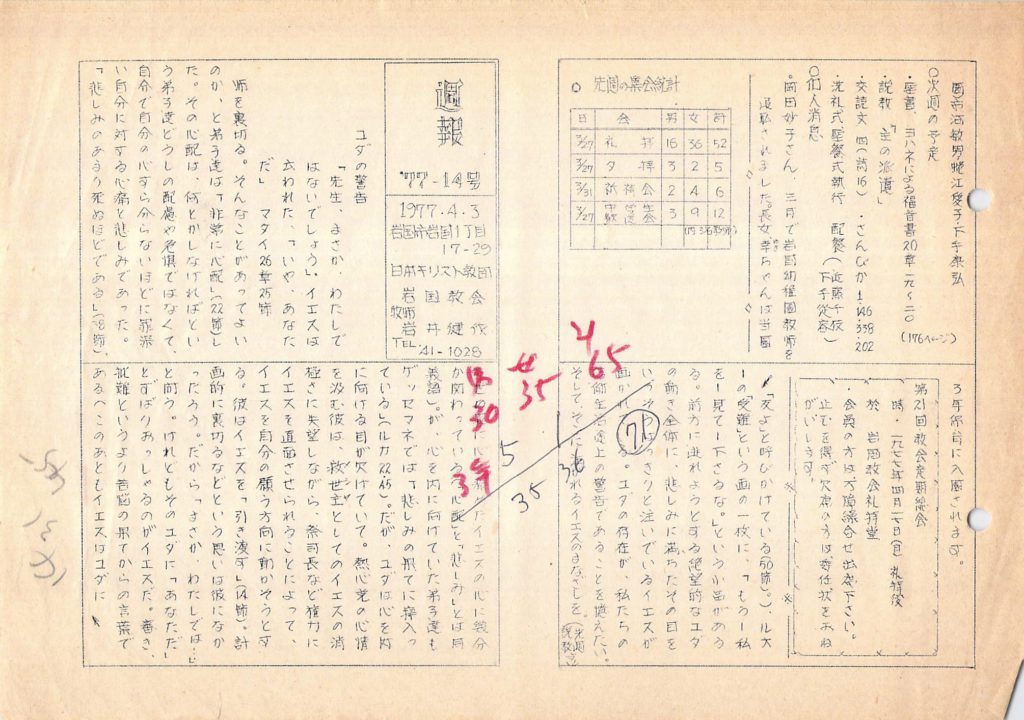 週報
'77-14号
1977.4.3
岩国市岩国1丁目
17-29
日本キリスト教団
岩国教会
牧師
岩井健作
TEL 41-1028
ユダの警告
「先生、まさか、わたしで
はないでしょう」。イエスは
云われた、「いや、あなた
だ」 マタイ26章25節
師を裏切る。そんなことがあってよい
のか、と弟子達は「非常に心配」(22節)し
た。その心配は、何とかしなければとい
う弟子達どうしの配慮や危惧ではなくて、
自分で自分の心すら分らないほどに
い自分に対する心痛と悲しみであった。
「悲しみのあまり死ぬほどである」(38節)、
イエスの心に幾分
か関わっている
義語)。が、心を内に向けていた弟子達も
ゲッセマネでは「悲しみの果てに寝入っ
ている」(ルカ22:45)。だが、ユダは心を内
に向ける目が欠けていて。熱心党の心情
を汲む彼は、救世主としてのイエスの消
極さに失望しながら、祭司長など権力に
イエスを直面させられることによって、
イエスを自分の願う方向に動かそうとす
る。彼はイエスを「引き渡す」(14節)。計
画的に裏切るなどという思いは彼になか
ったろう。だから「まさか、わたしでは…」
と問う。けれどもそのユダに「あなただ」
とずばりおっしゃるのがイエスだ。審き、
批難というより苦悩の果てからの言葉で
ある。へこのあともイエスはユダに
「友よ」と呼びかけている(50節)。)、ルオ
ーの「受難」という画の一枚に、「もう一私
を一見て一下さるな。」という小品がある
る。前方に逃れようとする絶望的なユダ
の動き全体に、悲しみに満ちたその目を
いつそうはっきりと注いでいるイエスが
画かれている。ユダの存在が、私たちの
途上の警告であることを覚えたい。
そしてそこに注がれるイエスのまなざしを。
(先週説教より)
○次週の予定
・聖書、ヨハネによる福音書20章一九〜二〇
・説教「主の派遣」
(176ページ)
・交読文 四(詩16) ・さんびか 1.146 338.202
・洗礼式聖餐式執行 配餐(近藤千枝 下手従容)
○個人消息
・岡田妙子さん、三月で岩国幼稚園教師を
退職されました。長女幸ちゃんは当園
3年保育に入園されます。
第21回教会定期総会
時・一九七七年四月一七日(日)礼拝後
於 岩国教会礼拝堂
・会員の方は万障繰合せ出席下さい。
止むを得ず欠席の方は委任状をおね
がいします。
○ 先週の集会統計
日 会 男 女 計
3/27 礼拝 16 36 52
3/27 夕拝 3 2 5
3/31 祈祷会 2 4 6
3/27 3 9 12
中 30
せ 35
4 65
39
5
36
35
71